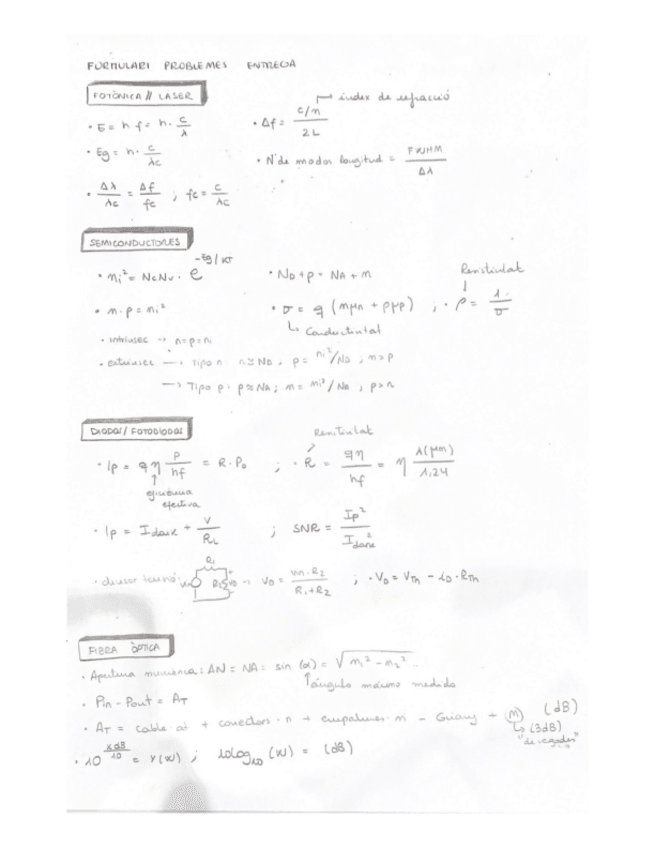 FORMULARI PROBLEMES ENTREGA
FOTÒNICA // LASER
· E = h f = h · c/λ
· Δf = (c/n)/2L → índex de refracció
· Eg = h · c/λc
· Nº de modos longitud = FWHM/Δλ
· Δλ/λc = Δf/fc ; fc = c/λc
SEMICONDUCTORES
· ni² = NcNv · e^(-Eg/KT)
· ND + p = NA + n
· n · p = ni²
· σ = q (nμn + pμp) ; · ρ = 1/σ
Resistivitat
↳ Conductivitat
· intrínsec → n=p=ni
· extrínsec → Tipo n: n≅ND, p = ni²/ND ; n>p
→ Tipo p: p≅NA ; n = ni²/NA, p>n
DIODOS/ FOTODIODOS
· Ip = qη P/hf = R · Po ; · R = qη/hf = η λ(μm)/1,24
↑
efectiva
· Ip = Idark + V/RL ; SNR = Ip²/Idark²
· divisor tensió: R1 → VO = Vin · R2/(R1+R2) ; · VO = VTh - iO · RTh
FIBRA ÒPTICA
· Apertura numèrica: AN = NA = sin (α) = √(n1² - n2²)
↑ángulo máximo medido
· Pin - Pout = AT
· AT = cable · at + conectors · n + empalmes · m - Guany + (M) (dB)
↳ (3dB)
· 10^(xdB/10) = Y(W) ; 10log10 (W) = (dB)